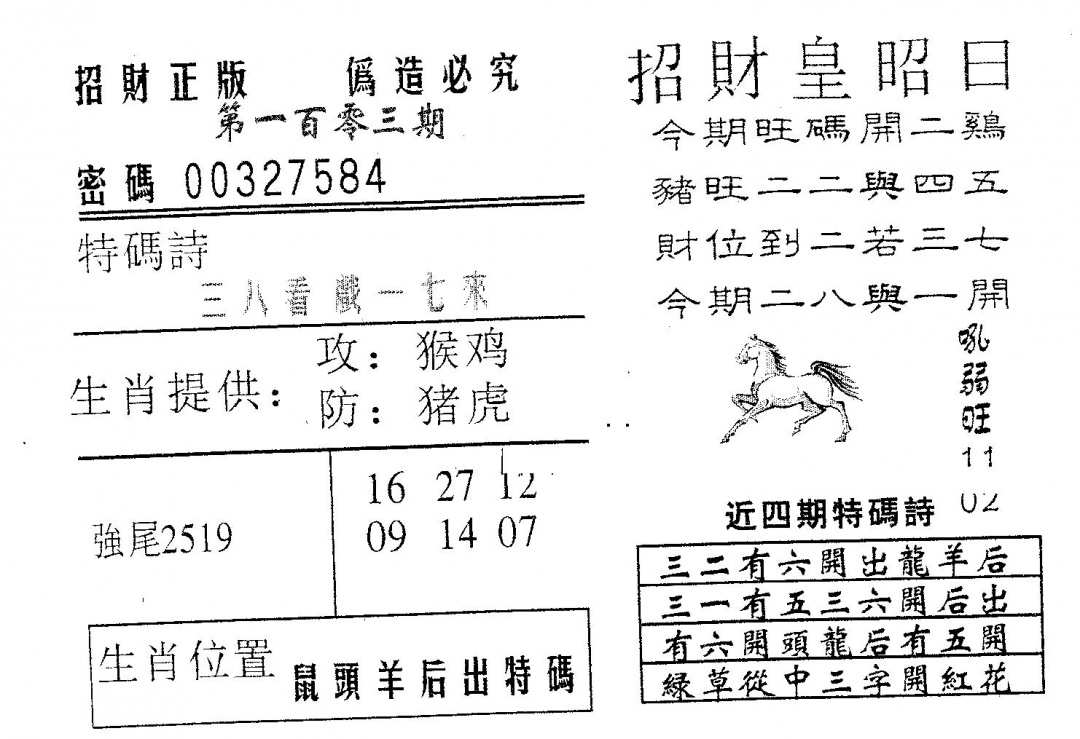 招財正版 偽造必究
第一百零三期
密碼 00327584
特碼詩
三八看戲一七來
生肖提供:
攻: 猴鸡
防: 猪虎
強尾2519
16 27 12
09 14 07
生肖位置 鼠頭羊后出特碼
招財皇昭日
今期旺碼開二鷄
豬旺二二與四五
財位到二若三七
今期二八與一開
吼弱旺
11
02
近四期特碼詩
三二有六開出龍羊后
三一有五三六開后出
有六開頭龍后有五開
緑草從中三字開紅花